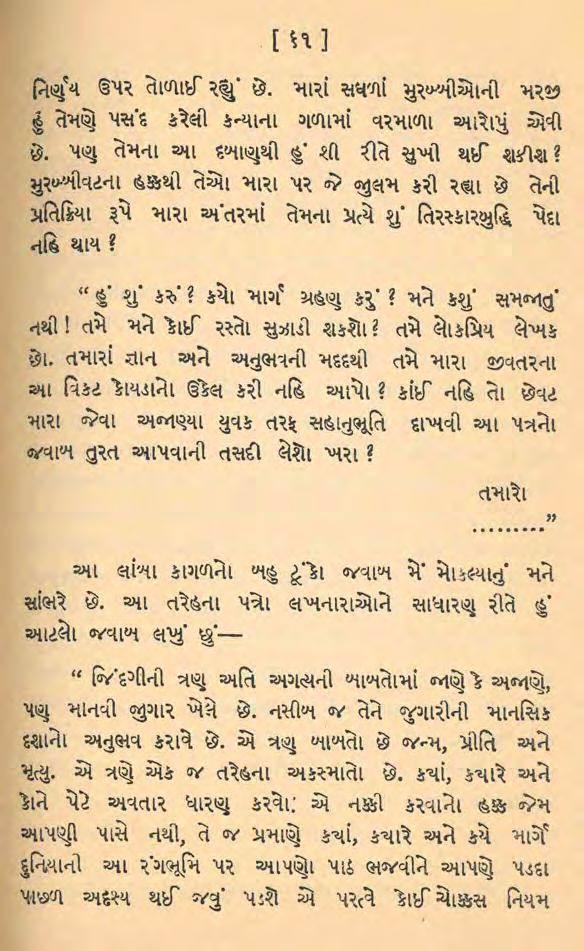 [ ૬૧ ]
નિર્ણય ઉપર તોળાઈ રહ્યું છે. મારાં સઘળાં મુરબ્બીઓની મરજી
હું તેમણે પસંદ કરેલી કન્યાના ગળામાં વરમાળા આરોપું એવી
છે. પણ તેમના આ દબાણથી હું શી રીતે સુખી થઈ શકીશ?
મુરબ્બીવટના હક્કથી તેઓ મારા પર જે જીુલમ કરી રહ્યા છે તેની
પ્રતિક્રિયા રૂપે મારા અંતરમાં તેમના પ્રત્યે શું તિરસ્કારબુદ્ધિ પેદા
નહિ થાય ?
“ હું શું કરું? કયો માર્ગ ગ્રહણ કરું ? મને કશું સમજાતું
નથી! તમે મને કોઈ રસ્તો સુઝાડી શકશો? તમે લોકપ્રિય લેખક
છો. તમારાં જ્ઞાન અને અનુભવની મદદથી તમે મારા જીવતરના
આ વિકટ કોયડાનો ઉકેલ કરી નહિ આપો ? કાંઈ નહિ તો છેવટ
મારા જેવા અજાણ્યા યુવક તરફ સહાનુભૂતિ દાખવી આ પત્રનો
જવાબ તુરત આપવાની તસદી લેશો ખરા ?
તમારો
.........”
આ લાંબા કાગળનો બહુ ટૂંકો જવાબ મેં મોકલ્યાનું મને
સાંભરે છે. આ તરેહના પત્રો લખનારાઓને સાધારણ રીતે હું
આટલો જવાબ લખું છું—
“ જિંદગીની ત્રણ અતિ અગત્યની બાબતોમાં જાણે કે અજાણે,
પણ માનવી જીુગાર ખેલે છે. નસીબ જ તેને જુગારીની માનસિક
દશાનો અનુભવ કરાવે છે. એ ત્રણ બાબતો છે જન્મ, પ્રીતિ અને
મૃત્યુ. એ ત્રણે એક જ તરેહના અકસ્માતો છે. કયાં, કયારે અને
કોને પેટે અવતાર ધારણ કરવો: એ નક્કી કરવાનો હક્ક જેમ
આપણી પાસે નથી, તે જ પ્રમાણે કયાં, કયારે અને કયે માર્ગે
દુનિયાની આ રંગભૂમિ પર આપણો પાઠ ભજવીને આપણે પડદા
પાછળ અદ્દશ્ય થઈ જવું પડશે એ પરત્વે કોઈ ચોક્કસ નિયમ